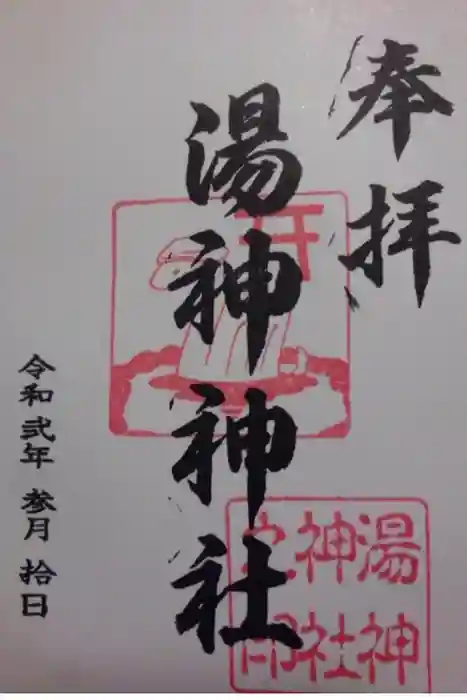 奉拝
湯神神社
令和弐年 参月 拾日
湯神
神社
之印